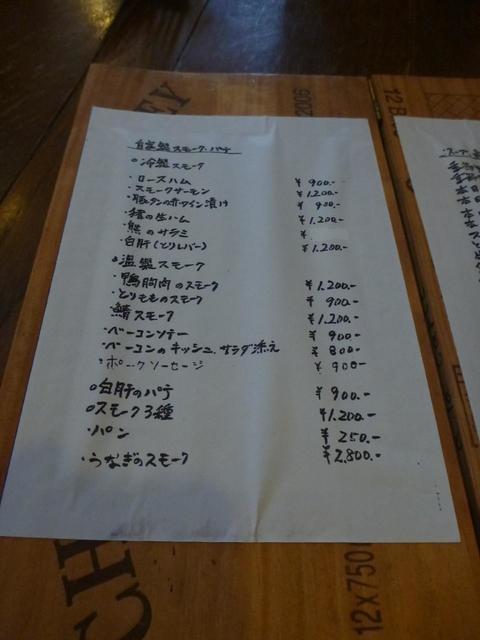 自家製スモーク・パテ
○冷製スモーク
・ロースハム ¥900.-
・スモークサーモン ¥1,200.-
・豚タンの赤ワイン漬け ¥900.-
・猪の生ハム ¥1,200.-
・熊のサラミ ¥
・白肝(とりレバー) ¥1,200.-
○温製スモーク
・鴨胸肉のスモーク ¥1,200.-
・とりもものスモーク ¥900.-
・鯖スモーク ¥1,200.-
・ベーコンソテー ¥900.-
・ベーコンのキッシュ、サラダ添え ¥800.-
・ポークソーセージ ¥900.-
○白肝のパテ ¥900.-
○スモーク3種 ¥1,200.-
・パン ¥250.-
・うなぎのスモーク ¥2,800.-
2006
12x750
12 B